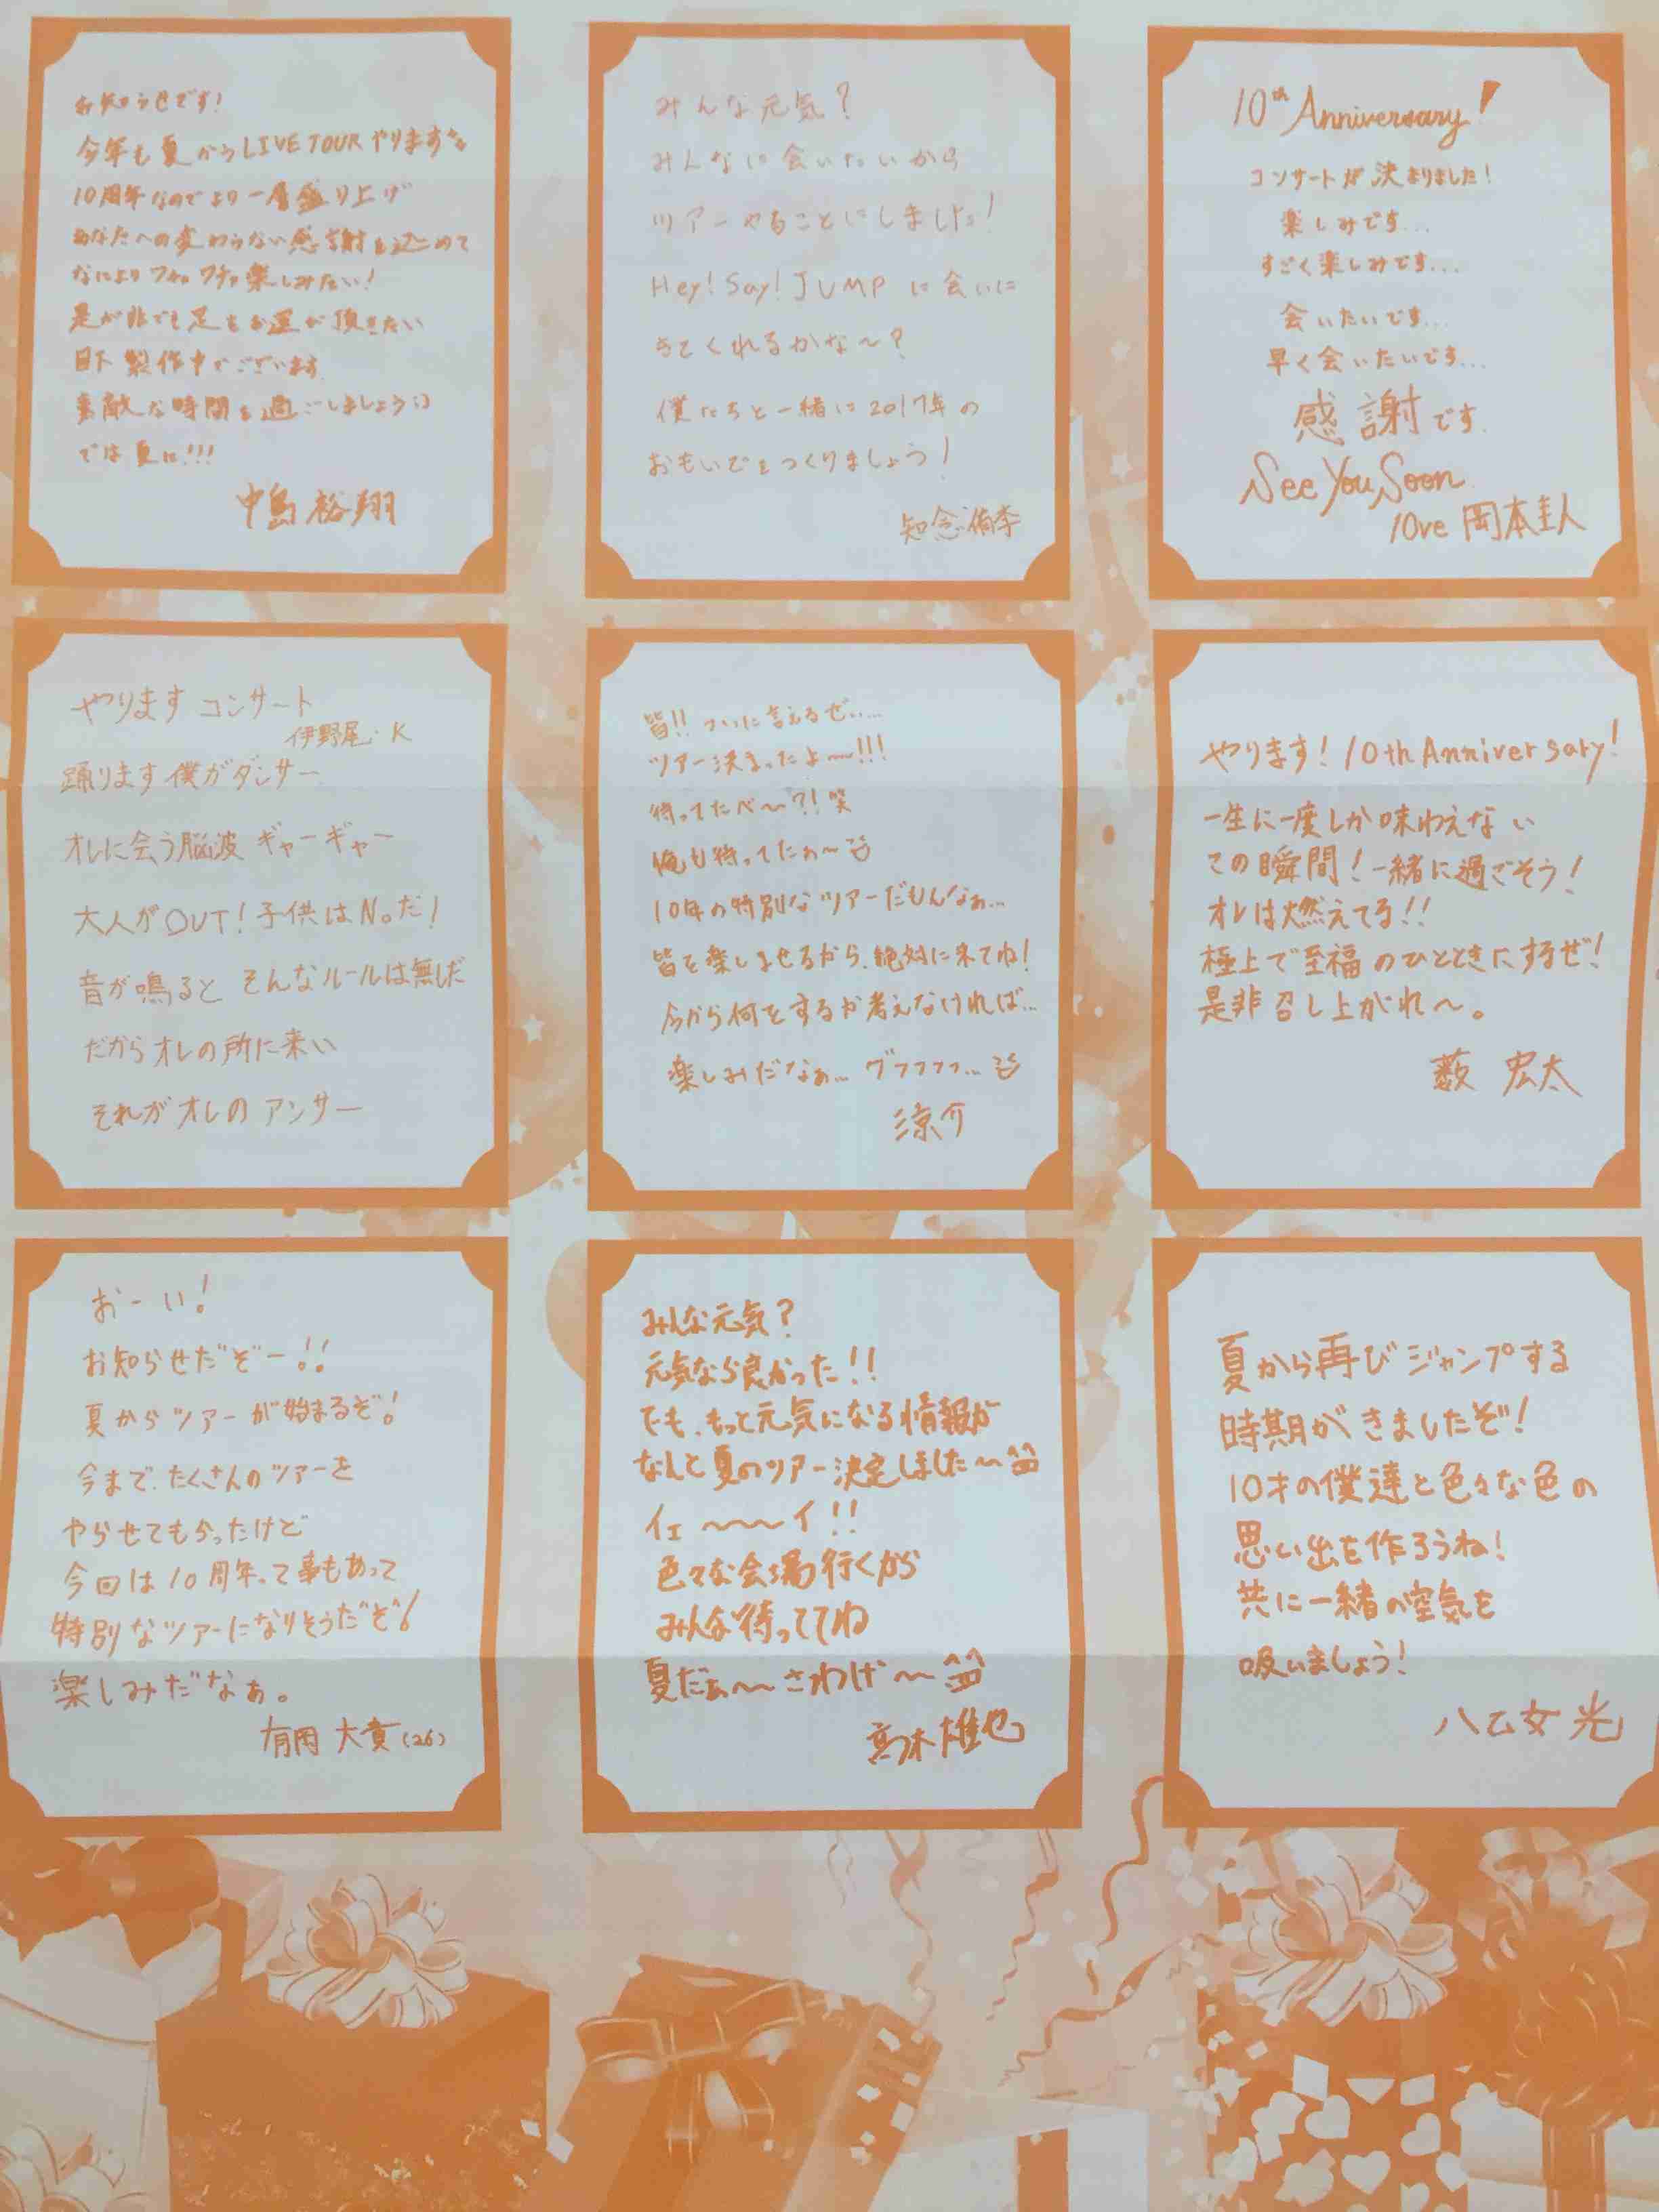 お知らせです!
今年も夏からLIVE TOURやります
10周年なのでより一層盛り上げ
あなたへの変わらない感謝を込めて
なにより ワチャワチャ楽しみたい!
是が非でも足をお運び頂きたい
目下製作中でございます
素敵な時間を過ごしましょう
では夏に!!!
中島裕翔
みんな元気?
みんなに会いたいから
ツアーやることにしました!
Hey! Say! JUMP に会いに
きてくれるかな〜?
僕たちと一緒に2017年の
おもいでをつくりましょう!
知念侑李
10th Anniversary!
コンサートが決まりました!
楽しみです...
すごく楽しみです...
会いたいです...
早く会いたいです...
感謝です.
See You Soon
10ve 岡本圭人
やります コンサート
伊野尾・K
踊ります 僕がダンサー
オレに会う脳波 ギャーギャー
大人がOUT! 子供はNoだ!
音が鳴ると そんなルールは無しだ
だからオレの所に来い
それがオレの アンサー
皆!! ついに言えるぜぃ...
ツアー決まったよ〜!!!
待ってたべ〜?! 笑
俺も待ってたぁ〜
10年の特別なツアーだもんなぁ...
皆を楽しませるから、絶対に来てね!
今から何をするか考えなければ...
楽しみだなぁ... グフフフフ...
涼介
やります! 10th Anniversary!
一生に一度しか味わえない
この瞬間! 一緒に過ごそう!
オレは燃えてる!!
極上で至福のひとときにするぜ!
是非召し上がれ〜。
薮 宏太
おーい!
お知らせだぞー!!
夏からツアーが始まるぞ!
今まで、たくさんのツアーを
やらせてもらったけど
今回は10周年って事もあって
特別なツアーになりそうだぞ!
楽しみだなぁ。
有岡 大貴(26)
みんな元気?
元気なら良かった!!
でも、もっと元気になる情報が
なんと夏のツアー決定しました〜
イェ〜〜〜イ!!
色々な会場行くから
みんな待っててね
夏だぁ〜〜さわげ〜
髙木雄也
夏から再びジャンプする
時期がきましたぞ!
10才の僕達と色々な色の
思い出を作ろうね!
共に一緒の空気を
吸いましょう!
八乙女 光